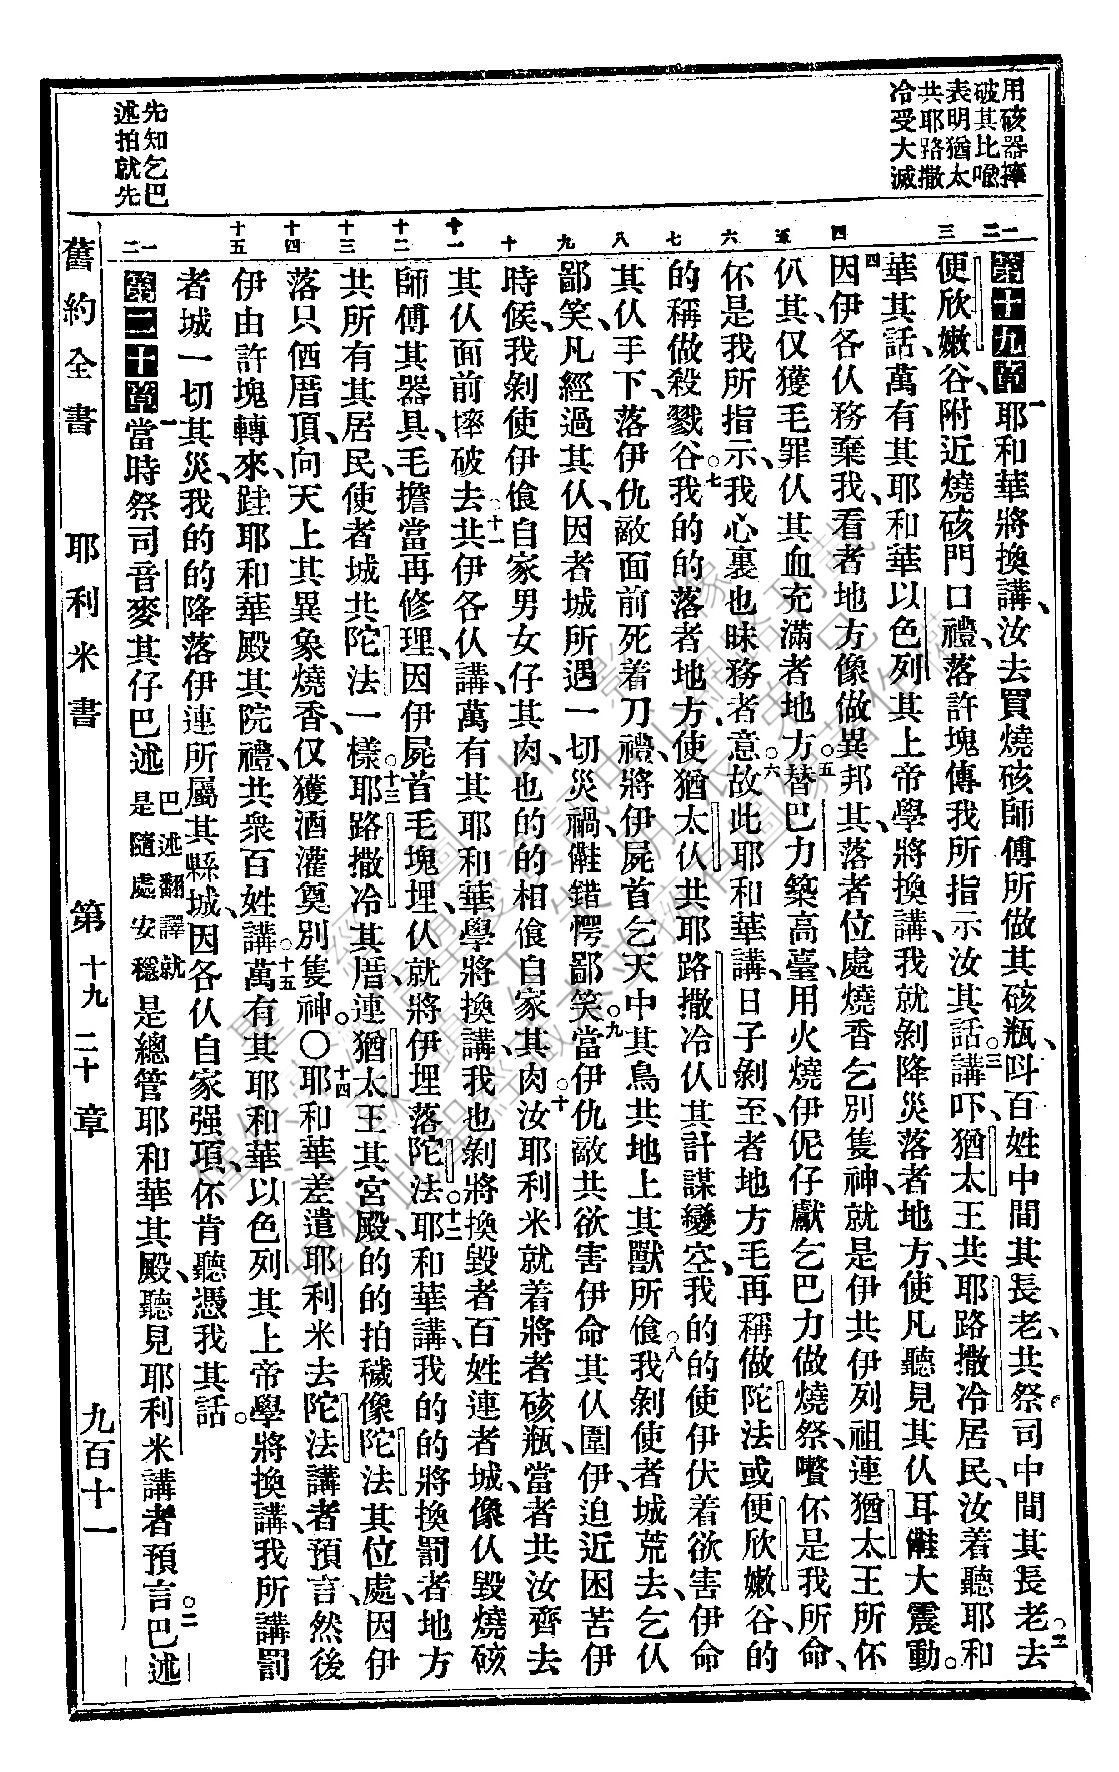 用硋器摔
破其比喻
表明猶太
共耶路撒
冷受大滅
先知乞巴
述拍就先
一 二 三 四 五 六 七 八 九 十 十一 十二 十三 十四 十五 一 二
第十九章 一耶和華將換講、汝去買燒硋師傅所做其硋瓶、呌百姓中間其長老、共祭司中間其長老去。二
便欣嫩谷、附近燒硋門口禮、落許塊傳我所指示汝其話。三講吓、猶太王共耶路撒冷居民、汝着聽耶和
華其話、萬有其耶和華以色列其上帝、學將換講、我就剝降災落者地方、使凡聽見其仈耳𠆧大震動。
四因伊各仈務棄我、看者地方像做異邦其、落者位處燒香乞別隻神、就是伊共伊列祖連猶太王所伓
仈其、仅獲毛罪仈其血充滿者地方。五替巴力築高臺、用火燒伊伲仔獻乞巴力做燒祭、嘴伓是我所命、
伓是我所指示、我心裏也昧務者意。六故此耶和華講、日子剝至、者地方毛再稱做陀法或便欣嫩谷、的
的稱做殺戮谷。七我的的落者地方、使猶太仈共耶路撒冷仈其計謀變空、我的的使伊伏着欲害伊命
其仈手下、落伊仇敵面前死着刀禮、將伊屍首乞天中其鳥共地上其獸所飧。八我剝使者城荒去、乞仈
鄙笑、凡經過其仈、因者城所遇一切災禍、𠆧錯愕鄙笑。九當伊仇敵共欲害伊命其仈圍伊迫近困苦伊
時候、我剝使伊飧自家男女仔其肉、也的的相飧自家其肉。十汝耶利米就着將者硋瓶、當者共汝齊去
其仈面前摔破去。十一共伊各仈講、萬有其耶和華學將換講、我也剝將換毀者百姓連者城、像仈毀燒硋
師傅其器具、毛擔當再修理、因伊屍首毛塊埋、仈就將伊埋落陀法。十二耶和華講、我的的將換罰者地方
共所有其居民、使者城共陀法一樣。十三耶路撒冷其厝、連猶太王其宮殿、的的拍穢像陀法其位處、因伊
落只𠆧厝頂、向天上其異象燒香、仅獲酒灌奠別隻神。〇十四耶和華差遣耶利米去陀法講者預言、然後
伊由許塊轉來、跬耶和華殿其院禮、共衆百姓講。十五萬有其耶和華以色列其上帝、學將換講、我所講罰
者城一切其災、我的的降落伊連所屬其縣城、因各仈自家强項、伓肯聽憑我其話。
第二十章 一當時祭司音麥其仔巴述巴述翻譯就是隨處安穩是總管耶和華其殿、聽見耶利米講者預言。二巴述
舊約全書 耶利米書 第十九二十章 九百十一